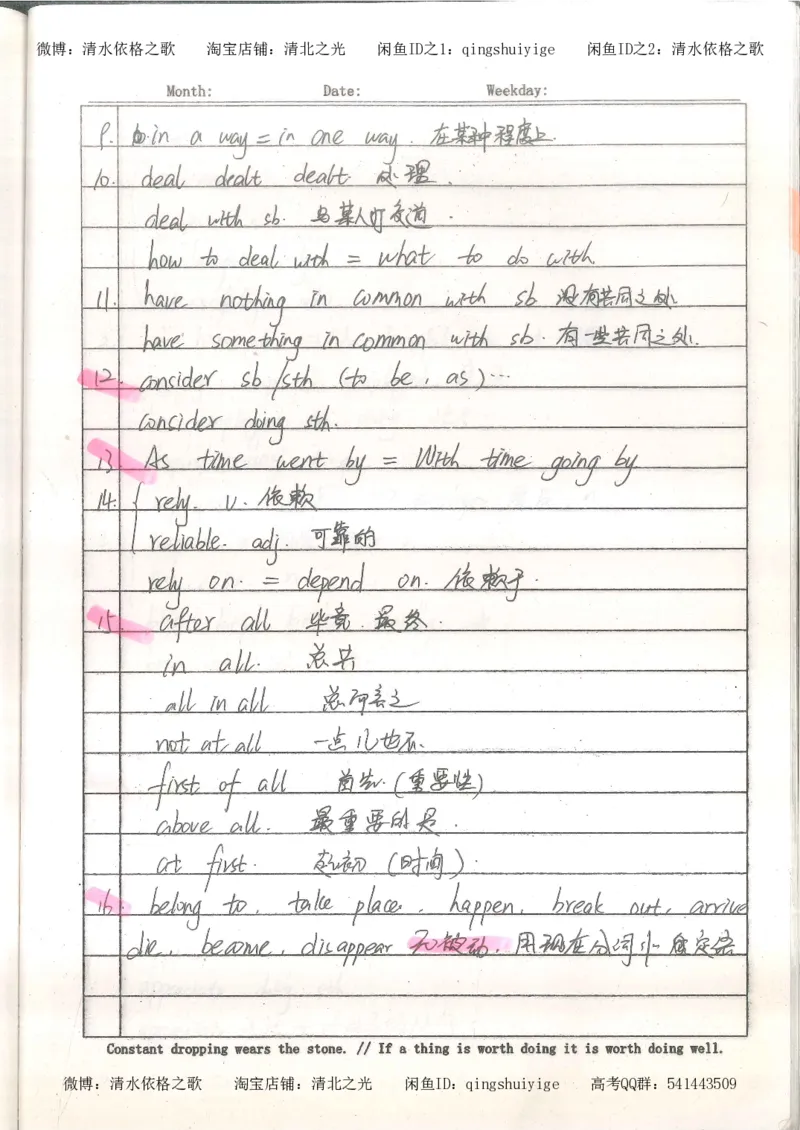 微博：清水依格之歌 淘宝店铺：清北之光 闲鱼ID之1：qingshuiyige 闲鱼ID之2：清水依格之歌
Month: Date: Weekday:
9. in a way = in one way. 在某种程度上.
10. deal dealt dealt 处理.
deal with sb. 与某人打交道.
how to deal with = what to do with.
11. have nothing in common with sb 没有共同之处.
have something in common with sb. 有一些共同之处.
12. consider sb/sth (to be, as)…
consider doing sth.
13. As time went by = With time going by
14. rely. v. 依赖
reliable. adj. 可靠的
rely on. = depend on. 依赖于.
15. after all 毕竟. 最终.
in all. 总共
all in all 总而言之
not at all 一点儿也不.
first of all 首先.(重要性)
above all. 最重要的是.
at first. 起初 (时间).
16. belong to, take place, happen, break out, arrive
die, become, disappear 无被动, 用现在分词作定语
Constant dropping wears the stone. // If a thing is worth doing it is worth doing well.
微博：清水依格之歌 淘宝店铺：清北之光 闲鱼ID：qingshuiyige 高考QQ群：541443509